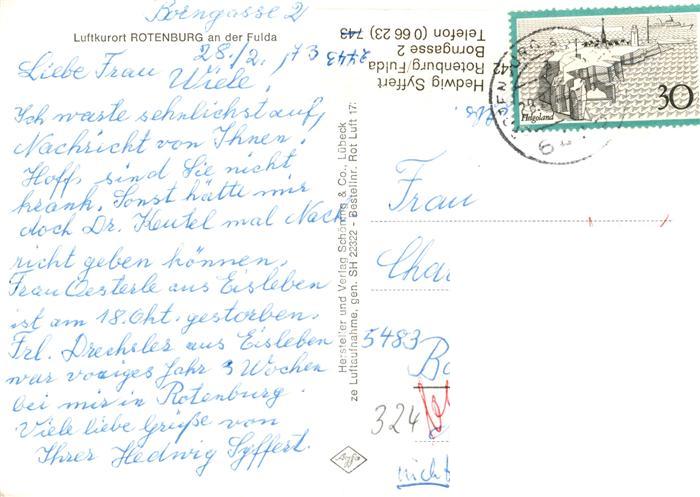 Borngasse 2
Luftkurort ROTENBURG an der Fulda
28./2. 73
Liebe Frau Wiele!
Ich warte sehnlichst auf
Nachricht von Ihnen.
Hoff. sind Sie nicht
krank. Sonst hätte mir
doch Dr. Keutel mal Nach
richt geben können.
Frau Oesterle aus Eisleben
ist am 18. Okt. gestorben.
Frl. Drechsler aus Eisleben
war voriges Jahr 3 Wochen
bei mir in Rotenburg.
Viele liebe Grüße von
Ihrer Hedwig Syffert.
Hersteller und Verlag Schöning & Co., Lübeck
ze Luftaufnahme, gen. SH 22322 - Bestellnr. Rot Luft 17:
Agfa
Hedwig Syffert
Rotenburg/Fulda
Borngasse 2
Telefon (0 66 23) 743
2443
Abs.
Helgoland
30
Frau
Char
5483
Ba
324
nicht